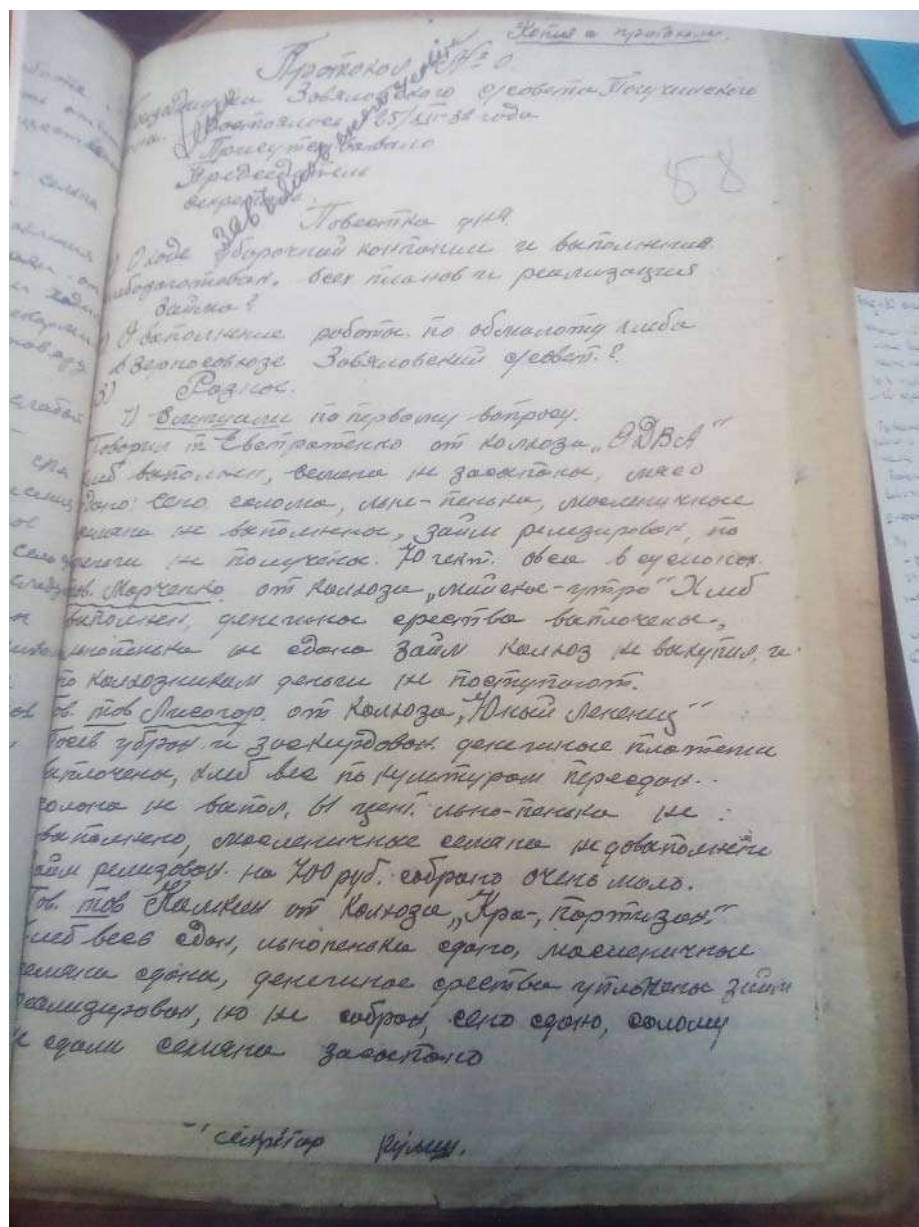 Копия с протокола.
Протокол № 0
Завяловского с/совета Пихчинского
состоялось 25/XII-32 года
Присутствовало
Председатель
секретарь
58
Повестка дня
О ходе уборочний компании и выполнения
хлебозаготовок, всех планов и реализация
займа?
О выполнение работ по обмолоту хлеба
в Зерносовюзе Завяловский с/совет.?
3) Разное.
1) Слушали по первому вопросу.
Говорил т Евстратенко от колхоза „ОДВА"
хлеб выполнен, семена не засыпаны, мясо
сдано: сено солома, лён-пенька, масленичные
семена не выполнены, займ релизирован, но
деньги не получены. 70 гект. овса в суслонах
тов. Марченко от колхоза „майское-утро" Хлеб
выполнен, денежные средства выплочены,
льнопенька не сдана займ колхоз не выкупил, и
по колхозникам деньги не поступают.
ов. тов Лисогор. от колхоза „Юный Ленениц"
Посев убран и заскирдован. денежные платежи
выплочены, хлеб все по культурам пересдан.
солома не выпол, цент. льно-пенька не
выполнено, масленичные семена недовыполнены
займ релизован. на 700 руб. собрано очень мало.
Тов. тов Камкин от колхоза „Кра-, портизан."
хлеб весь сдан, льнопенька сдано, масленичные
семена сданы, денежные средства уплочены займ
реализирован, но не собран, сено сдано, солому
не сдали семяна засыпано
секретар